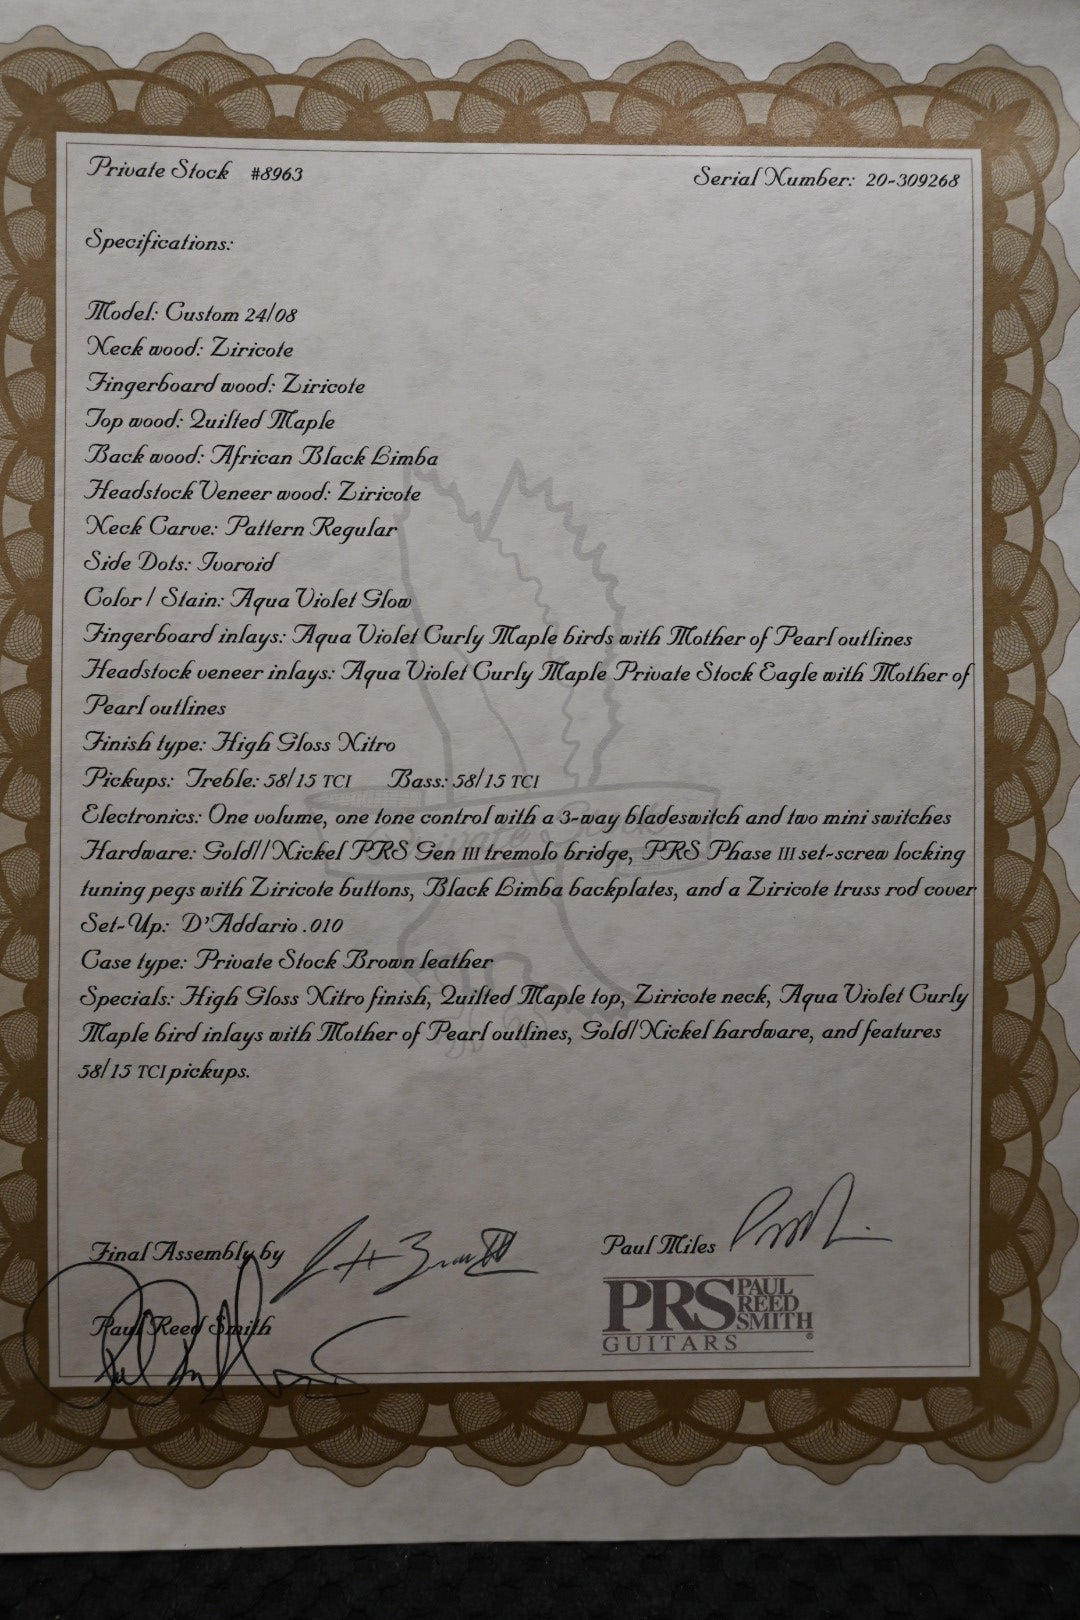 Private Stock #8963 Serial Number: 20-309268
Specifications:
Model: Custom 24/08
Neck wood: Ziricote
Fingerboard wood: Ziricote
Top wood: Quilted Maple
Back wood: African Black Limba
Headstock Veneer wood: Ziricote
Neck Carve: Pattern Regular
Side Dots: Ivoroid
Color / Stain: Aqua Violet Glow
Fingerboard inlays: Aqua Violet Curly Maple birds with Mother of Pearl outlines
Headstock veneer inlays: Aqua Violet Curly Maple Private Stock Eagle with Mother of
Pearl outlines
Finish type: High Gloss Nitro
Pickups: Treble: 58/15 TCI Bass: 58/15 TCI
Electronics: One volume, one tone control with a 3-way bladeswitch and two mini switches
Hardware: Gold//Nickel PRS Gen III tremolo bridge, PRS Phase III set-screw locking
tuning pegs with Ziricote buttons, Black Limba backplates, and a Ziricote truss rod cover
Set-Up: D'Addario .010
Case type: Private Stock Brown leather
Specials: High Gloss Nitro finish, Quilted Maple top, Ziricote neck, Aqua Violet Curly
Maple bird inlays with Mother of Pearl outlines, Gold/Nickel hardware, and features
58/15 TCI pickups.
Private Stock
Final Assembly by
Paul Miles
Paul Reed Smith
PRS PAUL REED SMITH
GUITARS ®